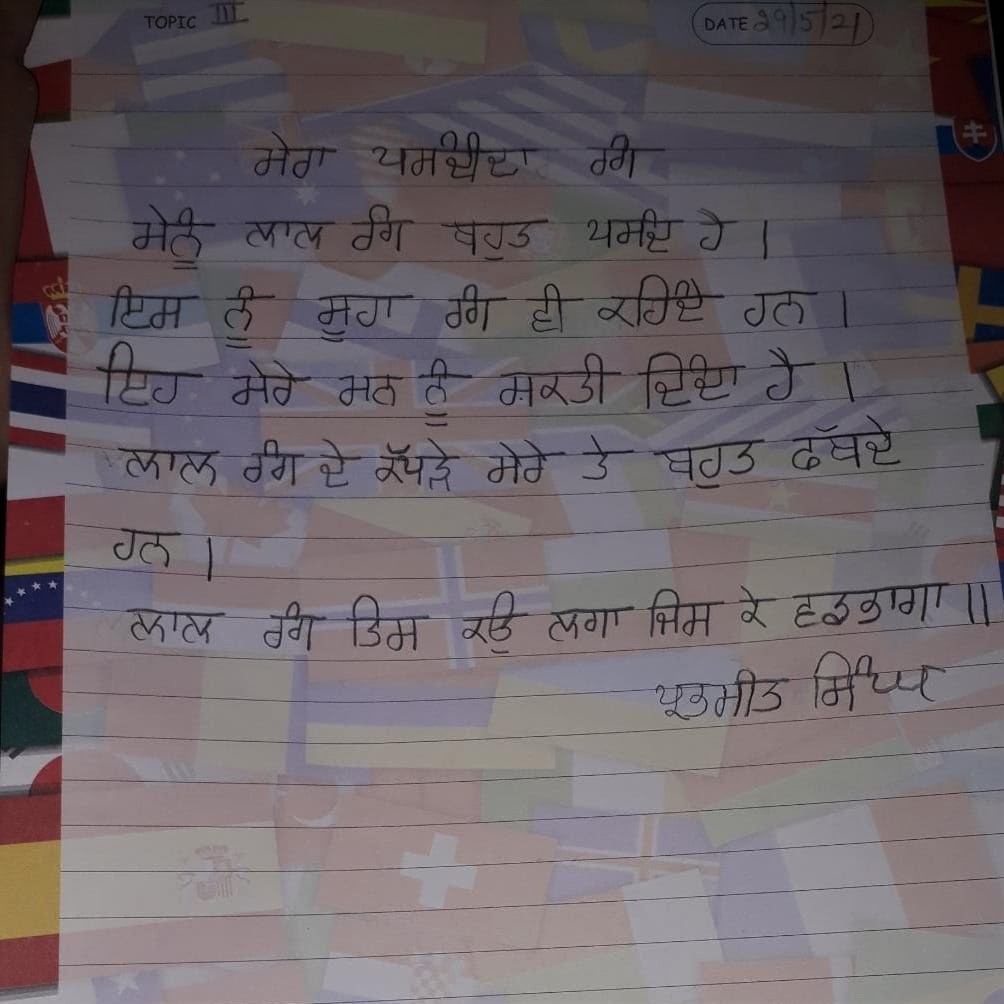 TOPIC III
DATE 29/5/21
ਮੇਰਾ ਪਸਦੀਦਾ ਰੰਗ
ਮੇਨੂੰ ਲਾਲ ਰੰਗ ਬਹੁਤ ਪਸੰਦ ਹੈ ।
ਇਸ ਨੂੰ ਸੂਹਾ ਰੰਗ ਵੀ ਕਹਿੰਦੇ ਹਨ ।
ਇਹ ਮੇਰੇ ਮਨ ਨੂੰ ਸ਼ਕਤੀ ਦਿੰਦਾ ਹੈ ।
ਲਾਲ ਰੰਗ ਦੇ ਕੱਪੜੇ ਮੇਰੇ ਤੇ ਬਹੁਤ ਫੱਬਦੇ
ਹਨ ।
ਲਾਲ ਰੰਗ ਤਿਸ ਕਉ ਲਗਾ ਜਿਸ ਕੇ ਵਡਭਾਗਾ ॥
ਸਿੰਘ